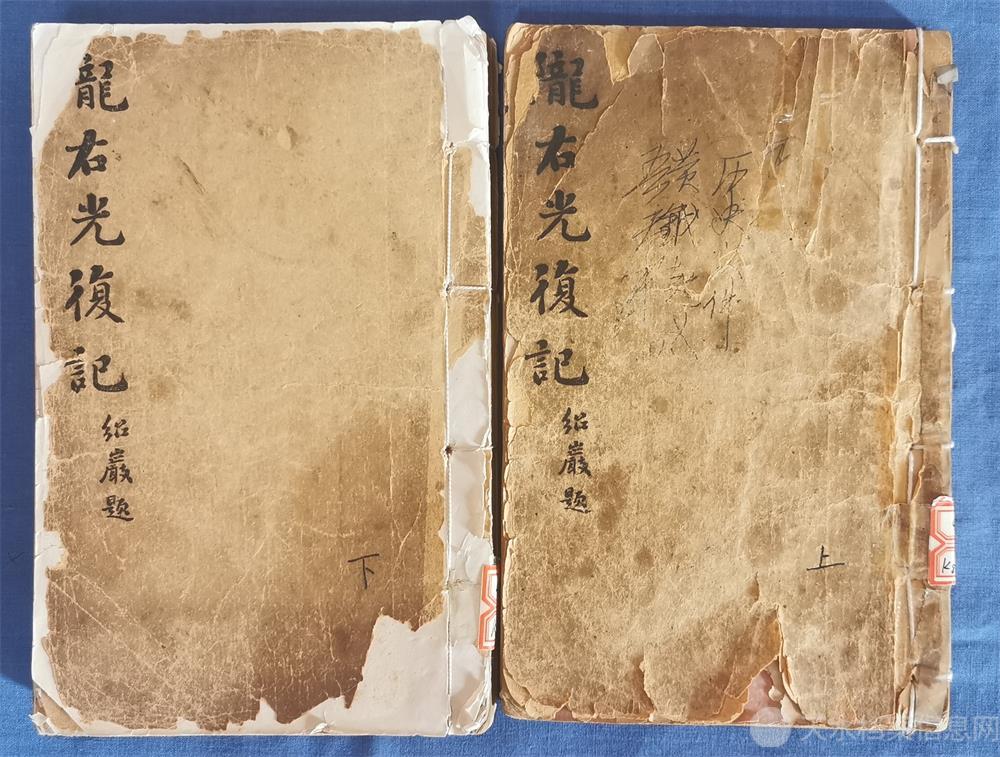 龍右光復記
紹巖題
下
隴右光復記
紹巖題
历史文件
上
天水档案信息网